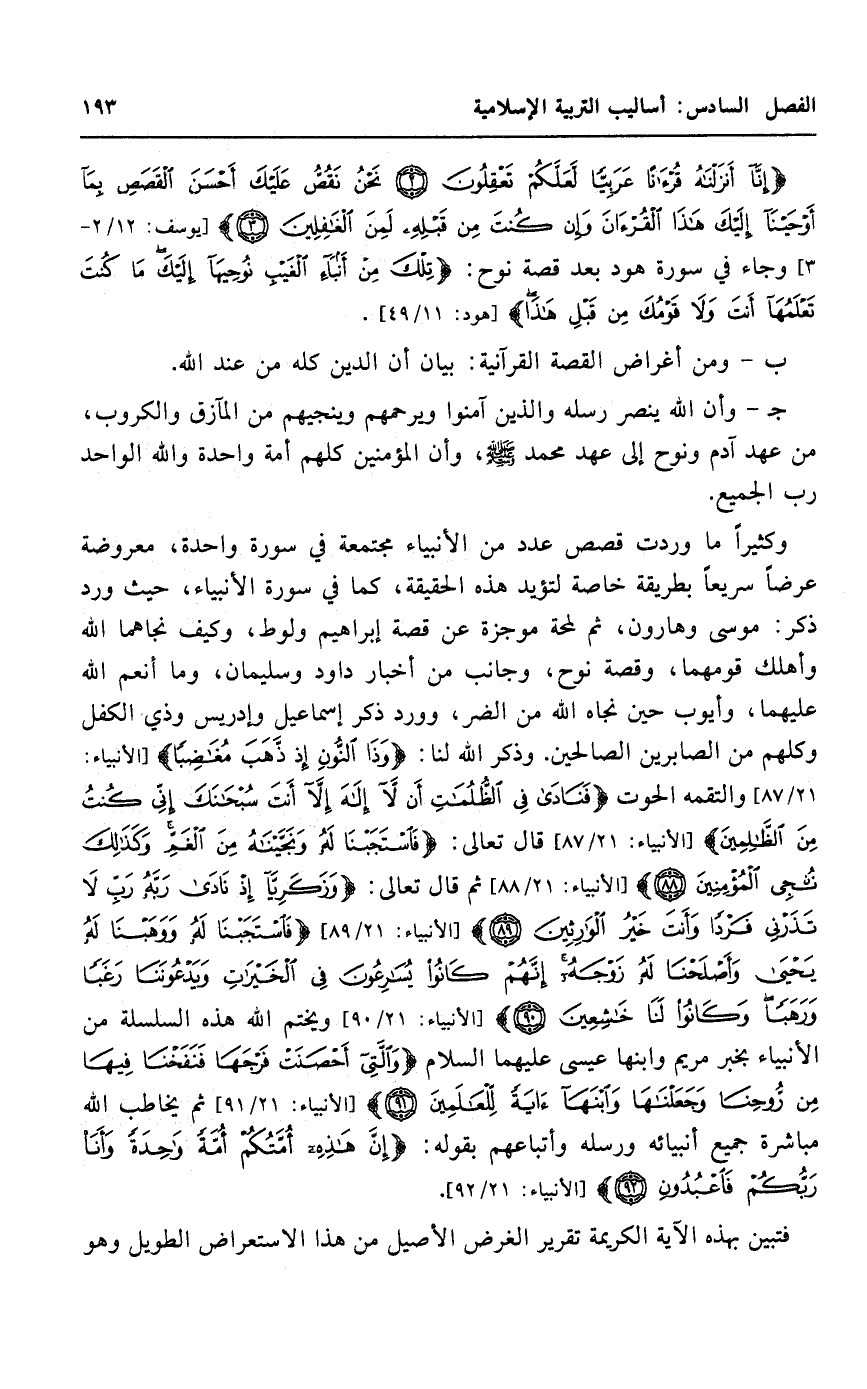 الفصل السادس: أساليب التربية الإسلامية ١٩٣
﴿إِنَّآ أَنزَلْنَٰهُ قُرْءَٰنًا عَرَبِيًّا لَّعَلَّكُمْ تَعْقِلُونَ ﴿٢﴾ نَحْنُ نَقُصُّ عَلَيْكَ أَحْسَنَ ٱلْقَصَصِ بِمَآ
أَوْحَيْنَآ إِلَيْكَ هَٰذَا ٱلْقُرْءَانَ وَإِن كُنتَ مِن قَبْلِهِۦ لَمِنَ ٱلْغَٰفِلِينَ ﴿٣﴾﴾ [يوسف: ٢/١٢-
٣] وجاء في سورة هود بعد قصة نوح: ﴿تِلْكَ مِنْ أَنۢبَآءِ ٱلْغَيْبِ نُوحِيهَآ إِلَيْكَۖ مَا كُنتَ
تَعْلَمُهَآ أَنتَ وَلَا قَوْمُكَ مِن قَبْلِ هَٰذَاۖ﴾ [هود: ٤٩/١١] .
ب - ومن أغراض القصة القرآنية: بيان أن الدين كله من عند الله.
جـ - وأن الله ينصر رسله والذين آمنوا ويرحمهم وينجيهم من المآزق والكروب،
من عهد آدم ونوح إلى عهد محمد ﷺ، وأن المؤمنين كلهم أمة واحدة والله الواحد
رب الجميع.
وكثيراً ما وردت قصص عدد من الأنبياء مجتمعة في سورة واحدة، معروضة
عرضاً سريعاً بطريقة خاصة لتؤيد هذه الحقيقة، كما في سورة الأنبياء، حيث ورد
ذكر: موسى وهارون، ثم لمحة موجزة عن قصة إبراهيم ولوط، وكيف نجاهما الله
وأهلك قومهما، وقصة نوح، وجانب من أخبار داود وسليمان، وما أنعم الله
عليهما، وأيوب حين نجاه الله من الضر، وورد ذكر إسماعيل وإدريس وذي الكفل
وكلهم من الصابرين الصالحين. وذكر الله لنا: ﴿وَذَا ٱلنُّونِ إِذ ذَّهَبَ مُغَٰضِبًا﴾ [الأنبياء:
٨٧/٢١] والتقمه الحوت ﴿فَنَادَىٰ فِى ٱلظُّلُمَٰتِ أَن لَّآ إِلَٰهَ إِلَّآ أَنتَ سُبْحَٰنَكَ إِنِّى كُنتُ
مِنَ ٱلظَّٰلِمِينَ﴾ [الأنبياء: ٨٧/٢١] قال تعالى: ﴿فَٱسْتَجَبْنَا لَهُۥ وَنَجَّيْنَٰهُ مِنَ ٱلْغَمِّۚ وَكَذَٰلِكَ
نُۨجِى ٱلْمُؤْمِنِينَ ﴿٨٨﴾﴾ [الأنبياء: ٨٨/٢١] ثم قال تعالى: ﴿وَزَكَرِيَّآ إِذْ نَادَىٰ رَبَّهُۥ رَبِّ لَا
تَذَرْنِى فَرْدًا وَأَنتَ خَيْرُ ٱلْوَٰرِثِينَ ﴿٨٩﴾﴾ [الأنبياء: ٨٩/٢١] ﴿فَٱسْتَجَبْنَا لَهُۥ وَوَهَبْنَا لَهُۥ
يَحْيَىٰ وَأَصْلَحْنَا لَهُۥ زَوْجَهُۥٓۚ إِنَّهُمْ كَانُوا۟ يُسَٰرِعُونَ فِى ٱلْخَيْرَٰتِ وَيَدْعُونَنَا رَغَبًا
وَرَهَبًاۖ وَكَانُوا۟ لَنَا خَٰشِعِينَ ﴿٩٠﴾﴾ [الأنبياء: ٩٠/٢١] ويختم الله هذه السلسلة من
الأنبياء بخبر مريم وابنها عيسى عليهما السلام ﴿وَٱلَّتِىٓ أَحْصَنَتْ فَرْجَهَا فَنَفَخْنَا فِيهَا
مِن رُّوحِنَا وَجَعَلْنَٰهَا وَٱبْنَهَآ ءَايَةً لِّلْعَٰلَمِينَ ﴿٩١﴾﴾ [الأنبياء: ٩١/٢١] ثم يخاطب الله
مباشرة جميع أنبيائه ورسله وأتباعهم بقوله: ﴿إِنَّ هَٰذِهِۦٓ أُمَّتُكُمْ أُمَّةً وَٰحِدَةً وَأَنَا۠
رَبُّكُمْ فَٱعْبُدُونِ ﴿٩٢﴾﴾ [الأنبياء: ٩٢/٢١].
فتبين بهذه الآية الكريمة تقرير الغرض الأصيل من هذا الاستعراض الطويل وهو